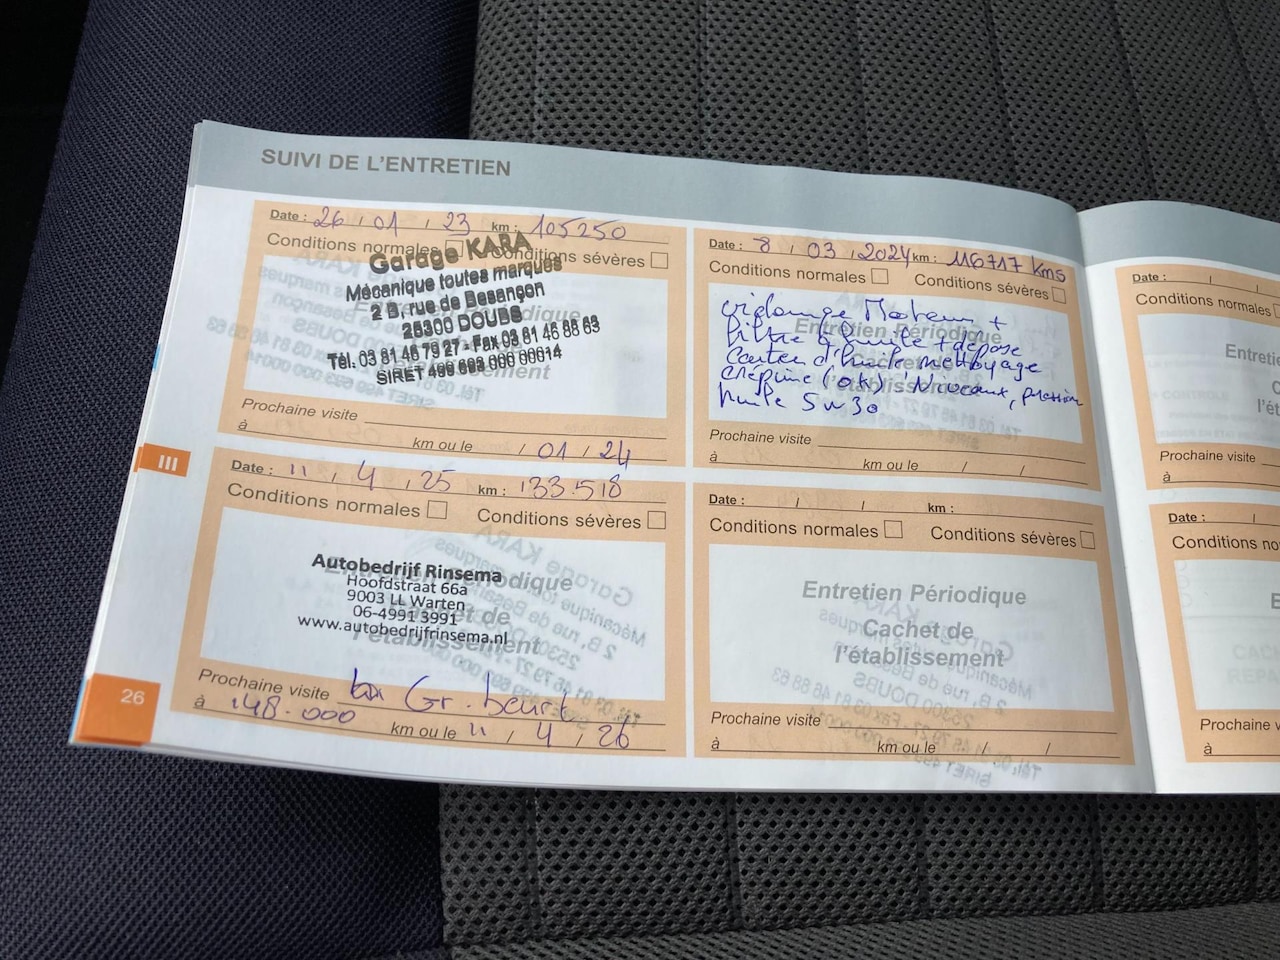 SUIVI DE L'ENTRETIEN
Date : 26 / 01 / 23 km : 105250
Conditions normales Conditions sévères
Garage KARA
Mécanique toutes marques
2 B, rue de Besançon
25300 DOUBS
Tél. 03 81 46 79 27 - Fax 03 81 46 88 63
SIRET 499 693 000 00014
Prochaine visite
à km ou le / 01 / 24
Date : 8 / 03 / 2024 km : 116717 kms
Conditions normales Conditions sévères
Entretien Périodique
vidange Moteur +
filtre à huile + dépose
Carter d'huile nettoyage
crépine (OK) Niveaux, pression
huile 5w30
Prochaine visite
à km ou le / /
III
Date : 11 / 4 / 25 km : 133.518
Conditions normales Conditions sévères
Autobedrijf Rinsema
Hoofdstraat 66a
9003 LL Warten
06-4991 3991
www.autobedrijfrinsema.nl
Prochaine visite Gr. beurt
à 148.000 km ou le 11 / 4 / 26
Date : / / km :
Conditions normales Conditions sévères
Entretien Périodique
Cachet de
l'établissement
Prochaine visite
à km ou le / /
26
Date : / /
Conditions normales
Prochaine visite
à
Date : /
Prochaine
à